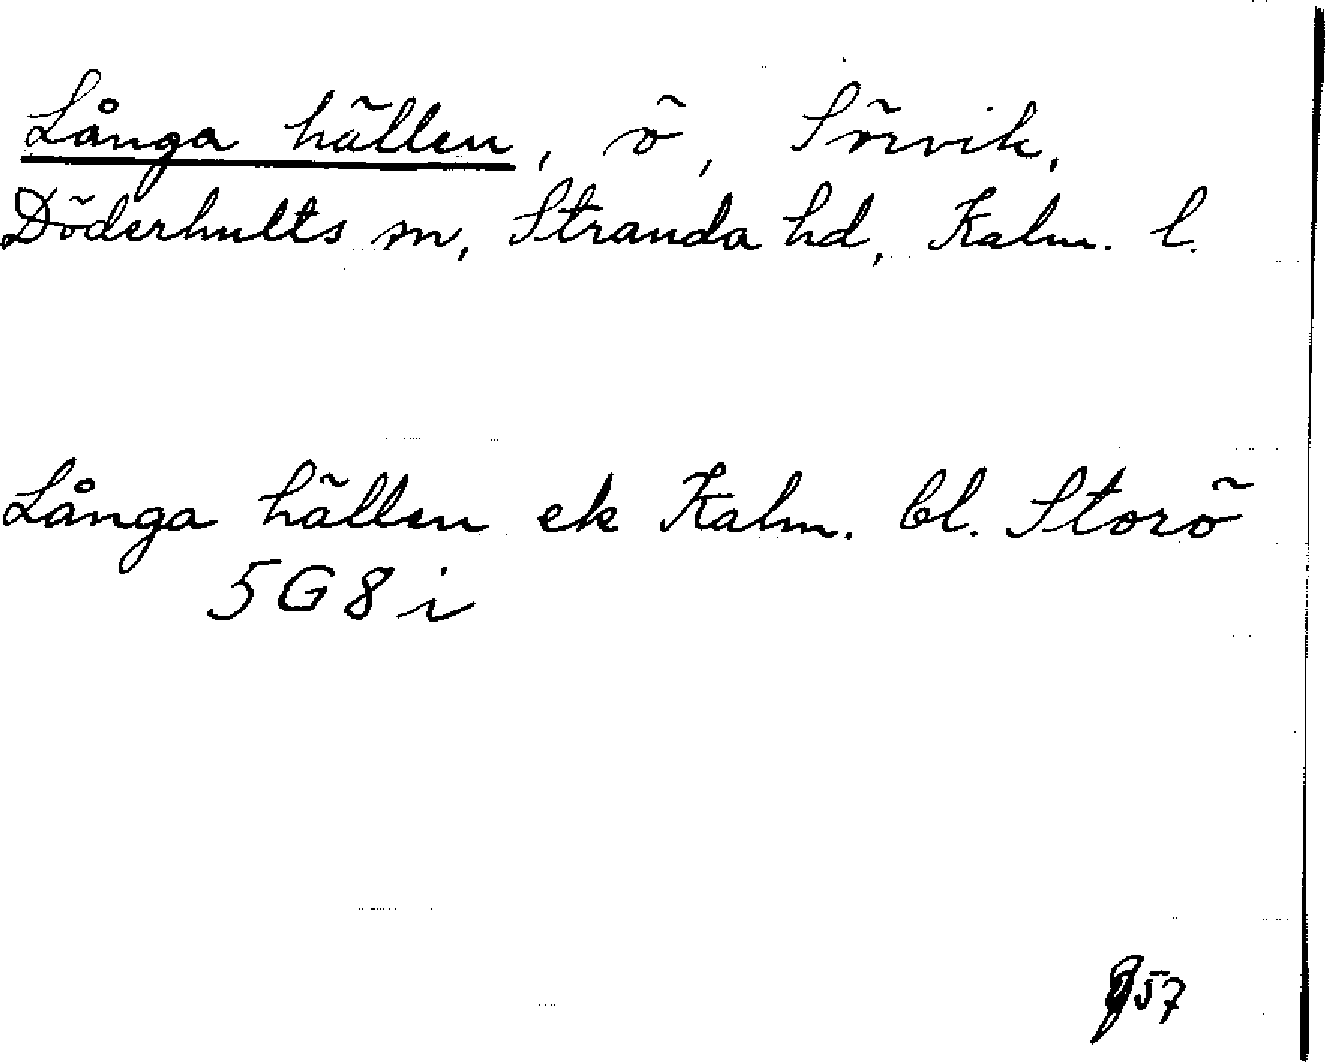 Långa hällen, ö, Sörvik,
Döderhults sn, Stranda hd, Kalm. l.
Långa hällen ek Kalm. bl. Storö
5G8i
57